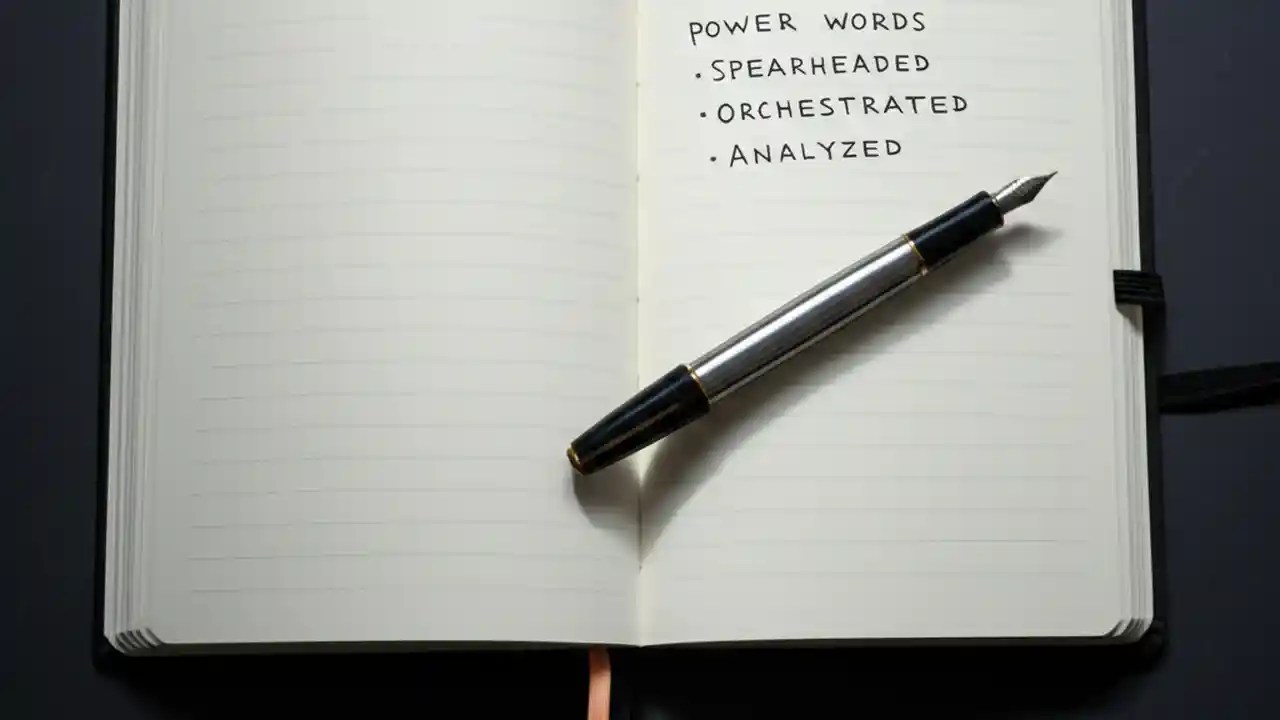 POWER WORDS
• SPEARHEADED
• ORCHESTRATED
• ANALYZED